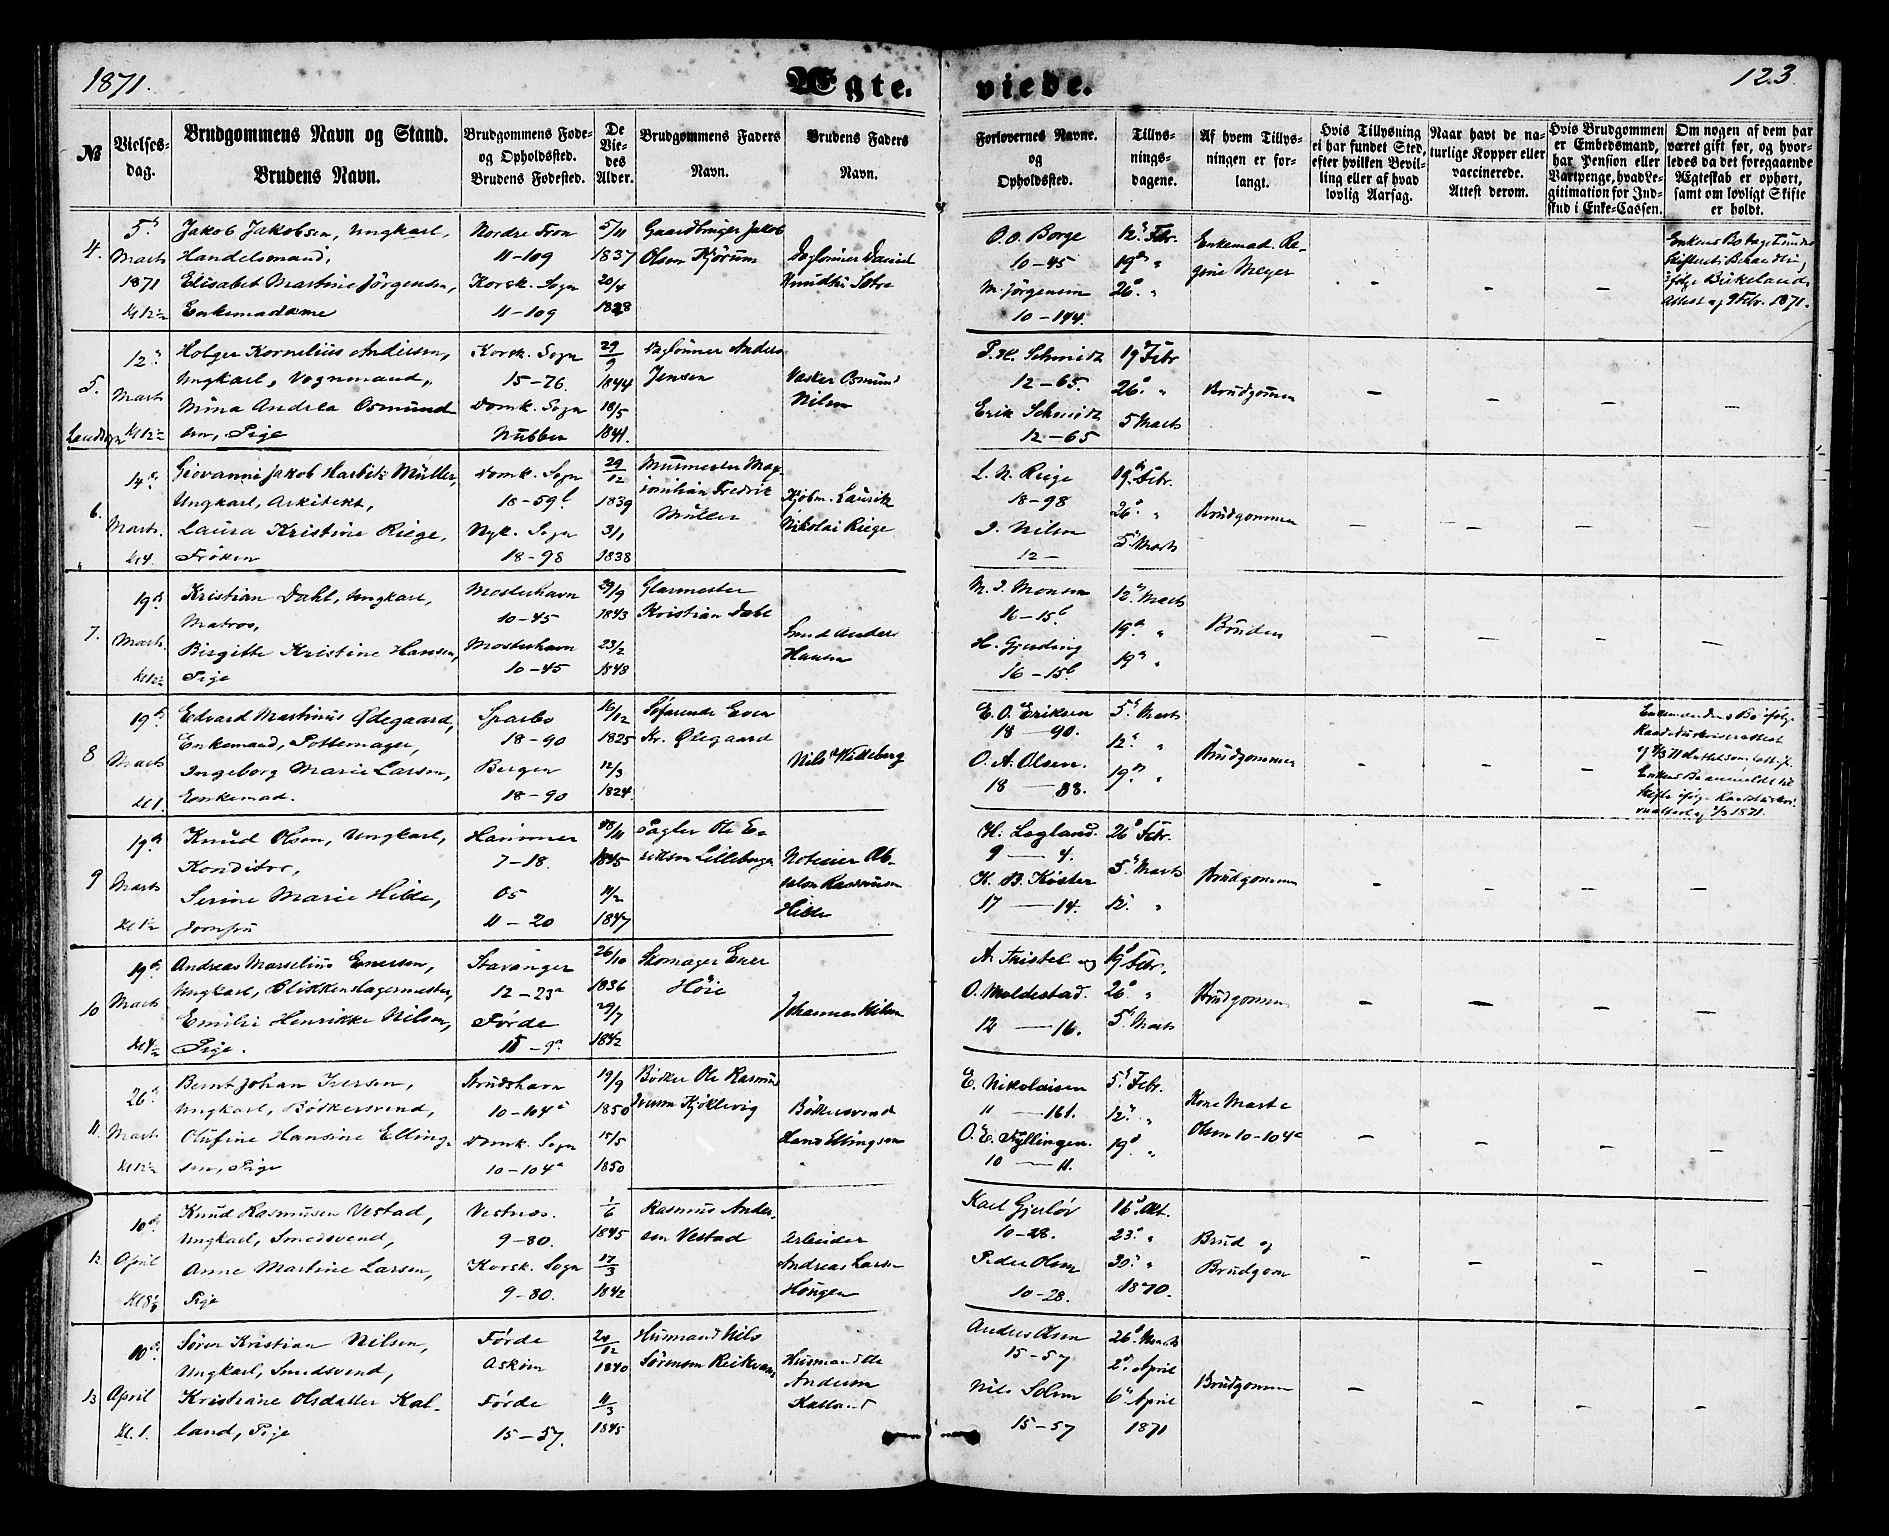 1871.
Ægte.
viede.
123
№
Vielses-dag.
Brudgommens Navn og Stand.
Brudens Navn.
Brudgommens Føde- og Opholdssted.
Brudens Fødested.
De Vie-des Alder.
Brudgommens Faders Navn.
Brudens Faders Navn.
Forlovernes Navne. og Opholdssted.
Tillys-nings-dagene.
Af hvem Tillys-ningen er for-langt.
Hvis Tillysning ei har fundet Sted, efter hvilken Bevil-ling eller af hvad lovlig Aarsag.
Naar havt de na-turlige Kopper eller vaccinerede. Attest derom.
Hvis Brudgommen er Embedsmand, har Pension eller Vartpenge, hvad Le-gitimation for Ind-skud i Enke-Cassen.
Om nogen af dem har været gift før, og hvor-ledes da det foregaaende Ægteskab er ophørt, samt om lovligt Skifte er holdt.
4.
5.
Marts
1871
Kl 12½
Jakob Jakobsen, Ungkarl,
Handelsmand,
Elisabet Martine Jörgensen,
Enkemadame
Nordre Fron
11-109
Korsk. Sogn
11-109
5/11
1837
20/4
1828
Gaardbruger Jakob
Olsen Kjörum
Daglönner Daniel
Knudsen Sotra
O. O. Borge
10-45
M. Jörgensen
10-144.
12. Febr.
19. "
26. "
Enkemad. Re-
gine Meyer
-
-
-
Attest af 9 Febr. 1871.
5.
12.
Marts
Kl 12½
Landsogn
Holger Kornelius Andersen,
Ungkarl, Vognmand,
Nina Andrea Osmund-
sen, Pige
Korsk. Sogn
15-76.
Domk. Sogn
Nubben
29/9
1844
18/5
1841.
Daglönner Anders
Jensen
Vasker Osmund
Nilsen
P. H. Schmidt
12-65.
Erik Schmidt
12-65
19 Febr
26. "
5 Marts
Brudgommen
-
-
-
-
6.
14.
Marts.
Kl 4.
Giovanni Jakob Müller,
Ungkarl, Arkitekt,
Laura Kristine Riege,
Fröken
Domk. Sogn
18-59b
Nyk. Sogn
18-98
29/12
1839
3/1
1838
Murmester Max-
imilian Fredrik
Müller
Kjöbm. Laurik
Nikolai Riege
L. N. Riege
18-98
J. Nilsen
12-
19. Febr.
26. "
5. Marts
Brudgommen
-
-
-
-
7.
19.
Marts.
Kl 12½
Kristian Dahl, Ungkarl,
Matros,
Birgitte Kristine Hansen,
Pige
Mosterhavn
10-45
Mosterhavn
10-45
29/9
1843
23/2
1848
Glasmester
Kristian Dahl
Anders
Hansen
M. J. Monsen
16-15b
H. Gjerding
16-15b
12. Marts
19. "
19. "
Bruden
-
-
-
-
8
19.
Marts
Kl 1.
Edvard Martinus Ødegaard,
Enkemand, Pottemager,
Ingeborg Marie Larsen,
Enkemad.
Sparbo
18-90
Bergen
18-90
16/12
1825
12/3
1824.
Söfarende Even
Kr. Ødegaard
Nils Hetleberg
E. O. Eriksen
18-90.
O. A. Olsen.
18-88.
5. Marts
12. "
19. "
Brudgommen
-
-
-
9
19.
Marts
Kl 1½
Knud Olsen, Ungkarl,
Konditor,
Serine Marie Hilde,
Jomfru
Hammer
7-18.
Os
11-20
18/11
1845
11/2
1847
Fogler Ole E-
riksen Lilleberge
Notbinder Ab-
salon Rasmussen
Hilde
H. Logland.
9-4.
H. B. Köster
17-14.
26. Febr.
5. Marts
12. "
Brudgommen
-
-
-
-
10
19.
Marts
Kl 4½
Andreas Marselius Enersen,
Ungkarl, Blikkenslagermester,
Emilie Henrikke Nilsen,
Pige.
Stavanger
12-23a
Förde
11-9a
26/10
1836
29/7
1842
Skomager Ener
Höie
Johannes Nilsen
A. Tristel og
O. Moldestad.
12-16.
19. Febr.
26. "
5. Marts
Brudgommen
-
-
-
-
11.
26.
Marts
Kl 12½
Bernt Johan Iversen,
Ungkarl, Bödkersvend,
Olufine Hansine Elling-
sen, Pige
Strudshavn
10-104a
Domk. Sogn
10-104a
19/9
1850
15/5
1850
Bödker Ole Rasmus
Iversen Kjöklevig
Bödkersvend
Hans Ellingsen
E. Nikolaisen
11-161.
O. E. Fyllingen.
10-11.
5. Febr.
12. "
19. "
Kone Marte
Olsen 10-104a
-
-
-
-
12
10.
April
Kl 8½
Knud Rasmusen Vestad,
Ungkarl, Smedsvend,
Anne Martine Larsen,
Pige
Vestnes.
9-80.
Korsk. Sogn
9-80.
1/6
1845
17/3
1842
Rasmus Anders-
sen Vestad
Arbeider
Andreas Larsen
Haugen
Karl Gjerlöv
10-28.
Peder Olsen
10-28.
16. Okt.
23. "
30. "
1870.
Brud og
Brudgom
-
-
-
-
13
10.
April
Kl. 1.
Sören Kristian Nilsen,
Ungkarl, Smedsvend,
Kristiane Olsdatter Kal-
land, Pige
Förde
Askön
Förde
15-57.
20/12
1840
11/3
1845
Husmand Nils
Sörensen Reikvam
Husmand Ole
Andersen
Kalland
Anders Olsen
15-57
Nils Solem
15-57
26. Marts
2. April
6. April
1871
Brudgommen
-
-
-
-